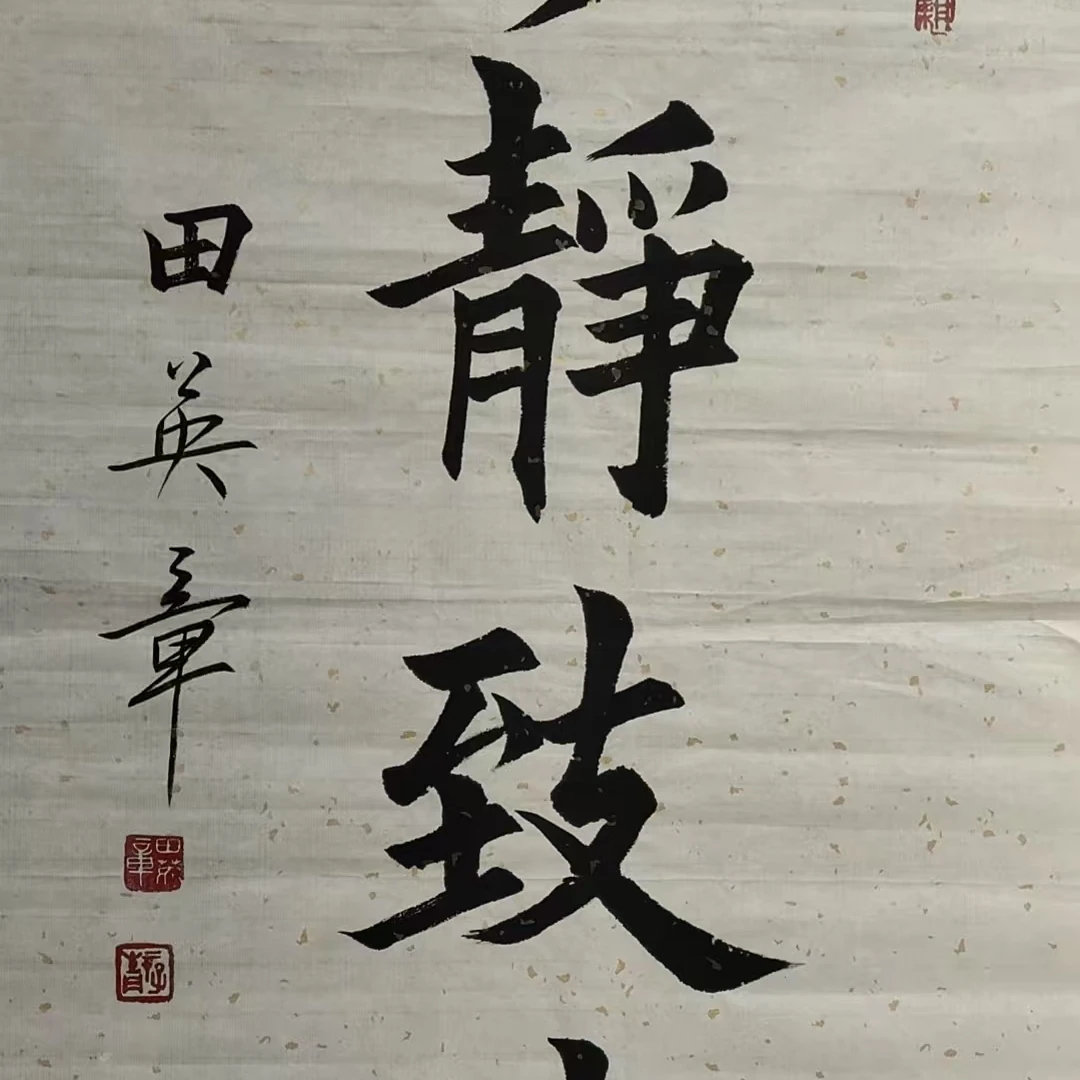 靜致
田英章
田英章